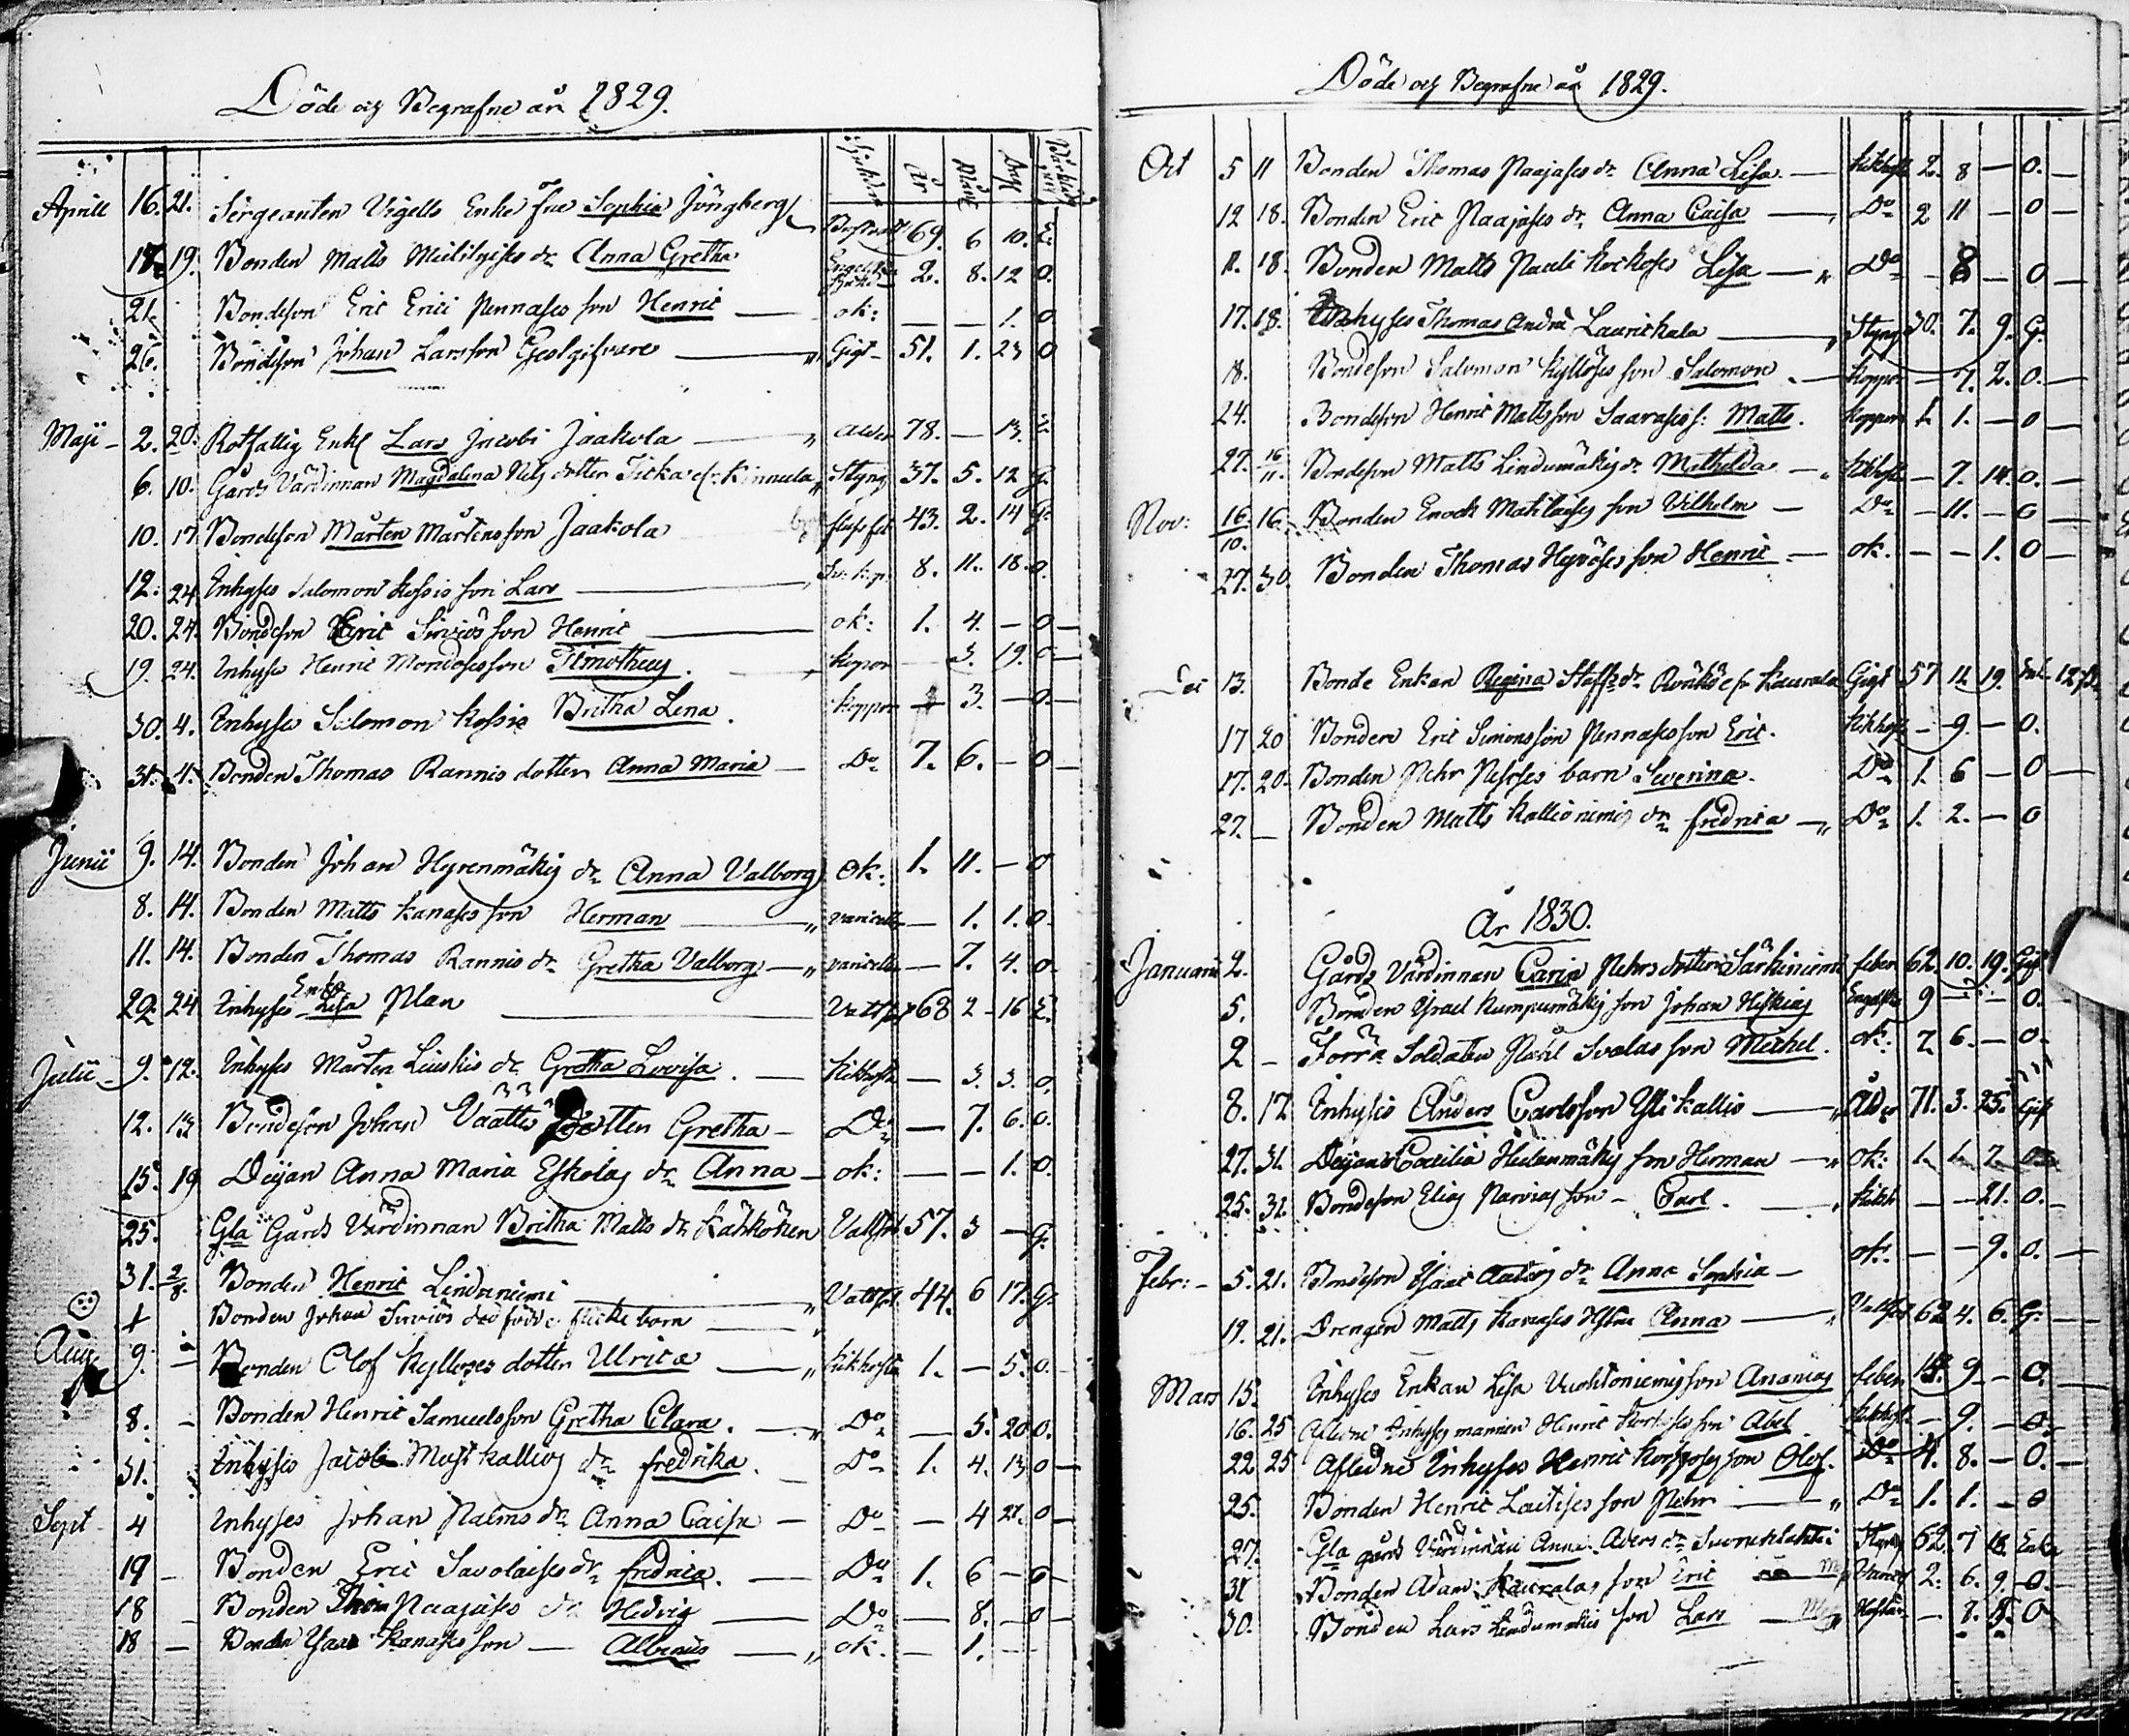 Döde och Begrafne år 1829.
Sjukdom År Mån: Dag
Aprill 16. 21. Sergeanten Vigells Enka Fru Sophia Jungberg 69. 6 10. E.
18. 19. Bonden Matts dr Anna Gretha 2. 8. 12 0.
21. Bondeson Eric Erici Pennases son Henric — ok: — — 1. 0
26. Bondeson Johan Larsson — Gigt 51. 1. 23 0
Maji 2. 20. Rotfattig Enkl Lars Jacobi Jaakola — Ålder 78. — 13. E.
6. 10. Gårds Värdinnan Magdalena Nils dotter Kinnula Styng 37. 5. 12 G.
10. 17. Bondeson Mårten Mårtensson Jaakola 43. 2. 14 G.
12. 24 Inhyses Salomon Kossis son Lars — 8. 11. 18. 0.
20. 24. Bondeson Eric Sirviös son Henric — ok: 1. 4. — 0 —
19. 24. Inhyses Henric son Timotheus. — kopor — 3. 19. 0 —
30. 4. Inhyses Salomon Kossis Britha Lena. koppor — 3. — 0. —
31. 4. Bonden Thomas Rannis dotter Anna Maria — Do 7. 6. — 0 —
Junii 9. 14. Bonden Johan Hyrenmäkis dr Anna Valborg Ok: 1. 11. — 0
8. 14. Bonden Matts Kanases son Herman — varicella — 1. 1. 0.
11. 14. Bonden Thomas Rannis dr Gretha Valborg — varicella — 7. 4. 0.
22. 24 Inhyses Enka Lisa Plan — 68 2 - 16 E.
Julii 9. 12. Inhyses Mårten Liuskis dr Gretha Lovisa. — Kikhosta — 3. 3. 0.
12. 13 Bondeson Johan dotter Gretha — Do — 7. 6. 0.
15. 19 Deijan Anna Maria Eskolas dr Anna — ok: — — 1. 0.
25. Gla Gårds Värdinnan Britha Matts dr Kähkönen Vattsot 57. 3 — G.
31. 2/8. Bonden Henric Linduniemi — Vattsot. 44. 6 17. G.
+ Bonden Johan Sirviös död född flicke barn —
Aug 9. — Bonden Olof Kyllöses dotter Ulrica — Kikhosta 1. — 5. 0.
8. — Bonden Henric Samuelsson Gretha Clara. — Do — 5. 20 0.
31. Inhyses Jacob Mustkallios dr Fredrika. — Do 1. 4. 13 0 —
Sept 4 Inhyses Johan Palms dr Anna Caisa — Do — 4 27. 0 —
19 — Bonden Eric Savolaises dr Fredrica. — Do 1. 6 — 0 —
18 — Bonden Thom Paajases dr Hedvig — Do — 8. — 0 —
18 — Bonden Isaac Kanases son — Albinus — ok. — 1. —
Döde och Begrafne år 1829.
Oct 5 11 Bonden Thomas Paajases dr Anna Lisa — kikhosta 2. 8 — 0. —
12 18. Bonden Eric Paajases dr Anna Caisa — Do 2 11 — 0 —
11. 18. Bonden Matts Pauli Kockoses Lisa — Do — 8 — 0 —
17. 18. Inhyses Thomas Andr: Laurickala — Styng 30. 7. 9. G.
18. Bondeson Salomon Kyllöses son Salomon. — koppor — 7. 2. 0. —
24. Bondeson Henric Mattsson Saarases s: Matts. koppor 1. 1. — 0 —
27. 16/11. Bondeson Matts Lindumäkis dr Mathilda — kikhosta — 7. 14. 0. —
Nov: 16/10. 16. Bonden Enoch Matilaises son Vilhelm — Do — 11. — 0 —
27. 30. Bonden Thomas son Henric — ok. — — 1. 0 —
Dec 13. Bonde Enkan Regina Staffs dr Kaurala Gigt 57 11 19. Enk
17 20 Bonden Eric Simonsson Pennases son Eric. kikhost — 9. — 0.
17. 20. Bonden Pehr barn Severina. Do 1. 6 — 0 —
27. — Bonden Matts Kallioniemis dr Fredrica — Do 1. 2. — 0
År 1830.
Januarii 2. Gårds Värdinnan Carin Pehrs dotter Särkiniemi feber 62. 10. 19.
5. Bonden Israel Kumpumäkis son Johan Hiskias Engelska 9 — — 0.
2 — Förra Soldaten Påhl Svalas son Michel. ok: 7. 6. — 0.
8. 17 Inhyses Anders Carlsson Ylikallio — Ålder 71. 3. 25. Gift
27. 31. Deijans Cecilia Heilunmäkis son Herman — ok: 1. 1. 7. 0
25. 31. Bondeson Elias Parvias son — Carl. — kikh — — 21. 0.
Febr: — 5. 21. Bondeson Isaac dr Anna Sophia — ok: — — 9. 0. —
19. 21. Drengen Matts Kanases Hstru Anna — Vattsot 62 4. 6. G. —
Mars 15. Inhyses Enkan Lisa Vuohtoniemis son Ananias feber 15. 9 — 0.
16. 25 Afledne Inhyses mannen Henric son Abel kikhost. — 9. — 0.
22 25 Afledne Inhyses Henric son Olof. Do 4. 8. — 0. —
25. Bonden Henric Laitises son Pehr — Do 1. 1. — 0
27. Gla gårds Värdinnan Anna Anders dr Styng 62. 7 18. Enka
31 Bonden Adam Kauralas son Eric 2. 6. 9. 0 —
30. Bonden Lars Lindumäkis son Lars — — 7. 8. 0